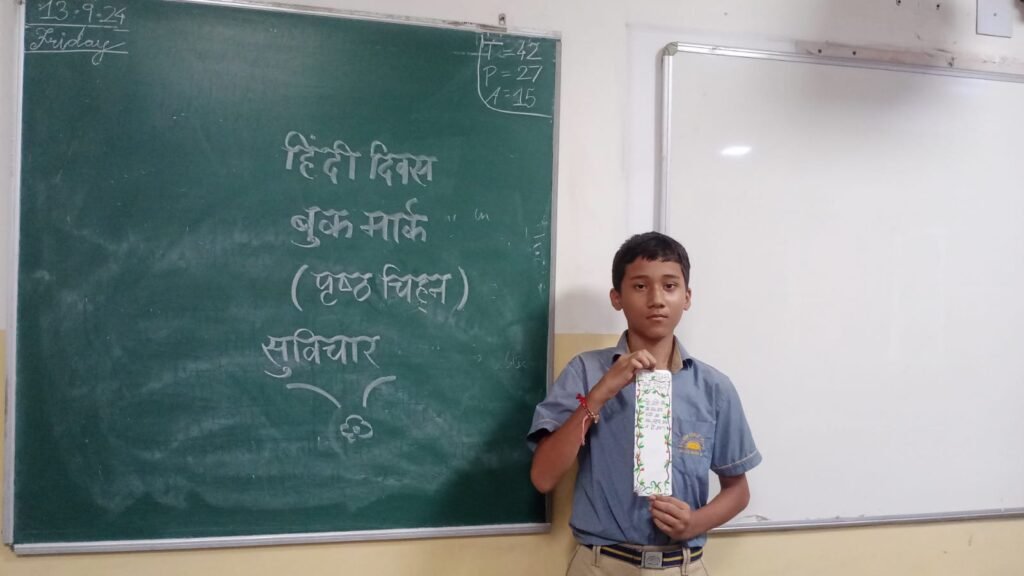 13.9.24
Friday
T = 42
P = 27
A = 15
हिंदी दिवस
बुक मार्क
(पृष्ठ चिह्न)
सुविचार